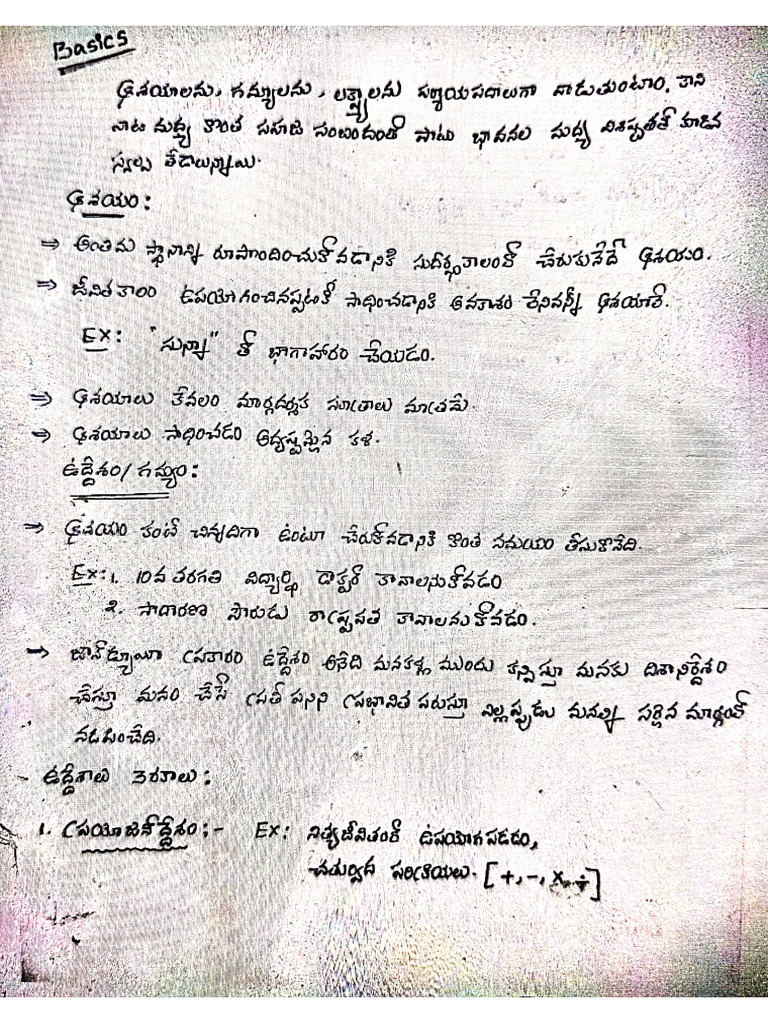 Basics
ఆశయాలను, గమ్యాలను, లక్ష్యాలను పర్యాయపదాలుగా వాడుతుంటాం. కాని
వాటి మధ్య కొంత సహజ సంబంధంతో పాటు భావనల మధ్య విశిష్టతతో కూడిన
స్వల్ప తేడాలున్నాయి.
ఆశయం:
⇒ అంతిమ స్థానాన్ని రూపొందించుకోవడానికి సుదీర్ఘకాలంలో చేరుకునేదే ఆశయం.
⇒ జీవితకాలం ఉపయోగించినప్పటికీ సాధించడానికి అవకాశం లేనివన్నీ ఆశయాలే.
Ex: "సున్నా" తో భాగాహారం చేయడం.
⇒ ఆశయాలు కేవలం మార్గదర్శక సూత్రాలు మాత్రమే.
⇒ ఆశయాలు సాధించడం అదృష్టమైన కళ.
ఉద్దేశం/గమ్యం:
⇒ ఆశయం కంటే చిన్నదిగా ఉంటూ చేరుకోవడానికి కొంత సమయం తీసుకొనేది.
Ex: 1. 10వ తరగతి విద్యార్థి డాక్టర్ కావాలనుకోవడం
2. సాదారణ పౌరుడు రాష్ట్రపతి కావాలనుకోవడం.
⇒ జాన్ డ్యూయీ ప్రకారం ఉద్దేశం అనేది మనకళ్ల ముందు కన్పిస్తూ మనకు దిశానిర్దేశం
చేస్తూ మనం చేసే ప్రతీ పనిని ప్రభావిత పరుస్తూ ఎల్లప్పుడు మనల్ని సరైన మార్గంలో
నడిపించేది.
ఉద్దేశాలు 3 రకాలు:
1. ప్రయోజనోద్దేశం:- Ex: నిత్యజీవితంలో ఉపయోగపడడం,
చతుర్విద పరిక్రియలు. [+, -, ×, ÷]